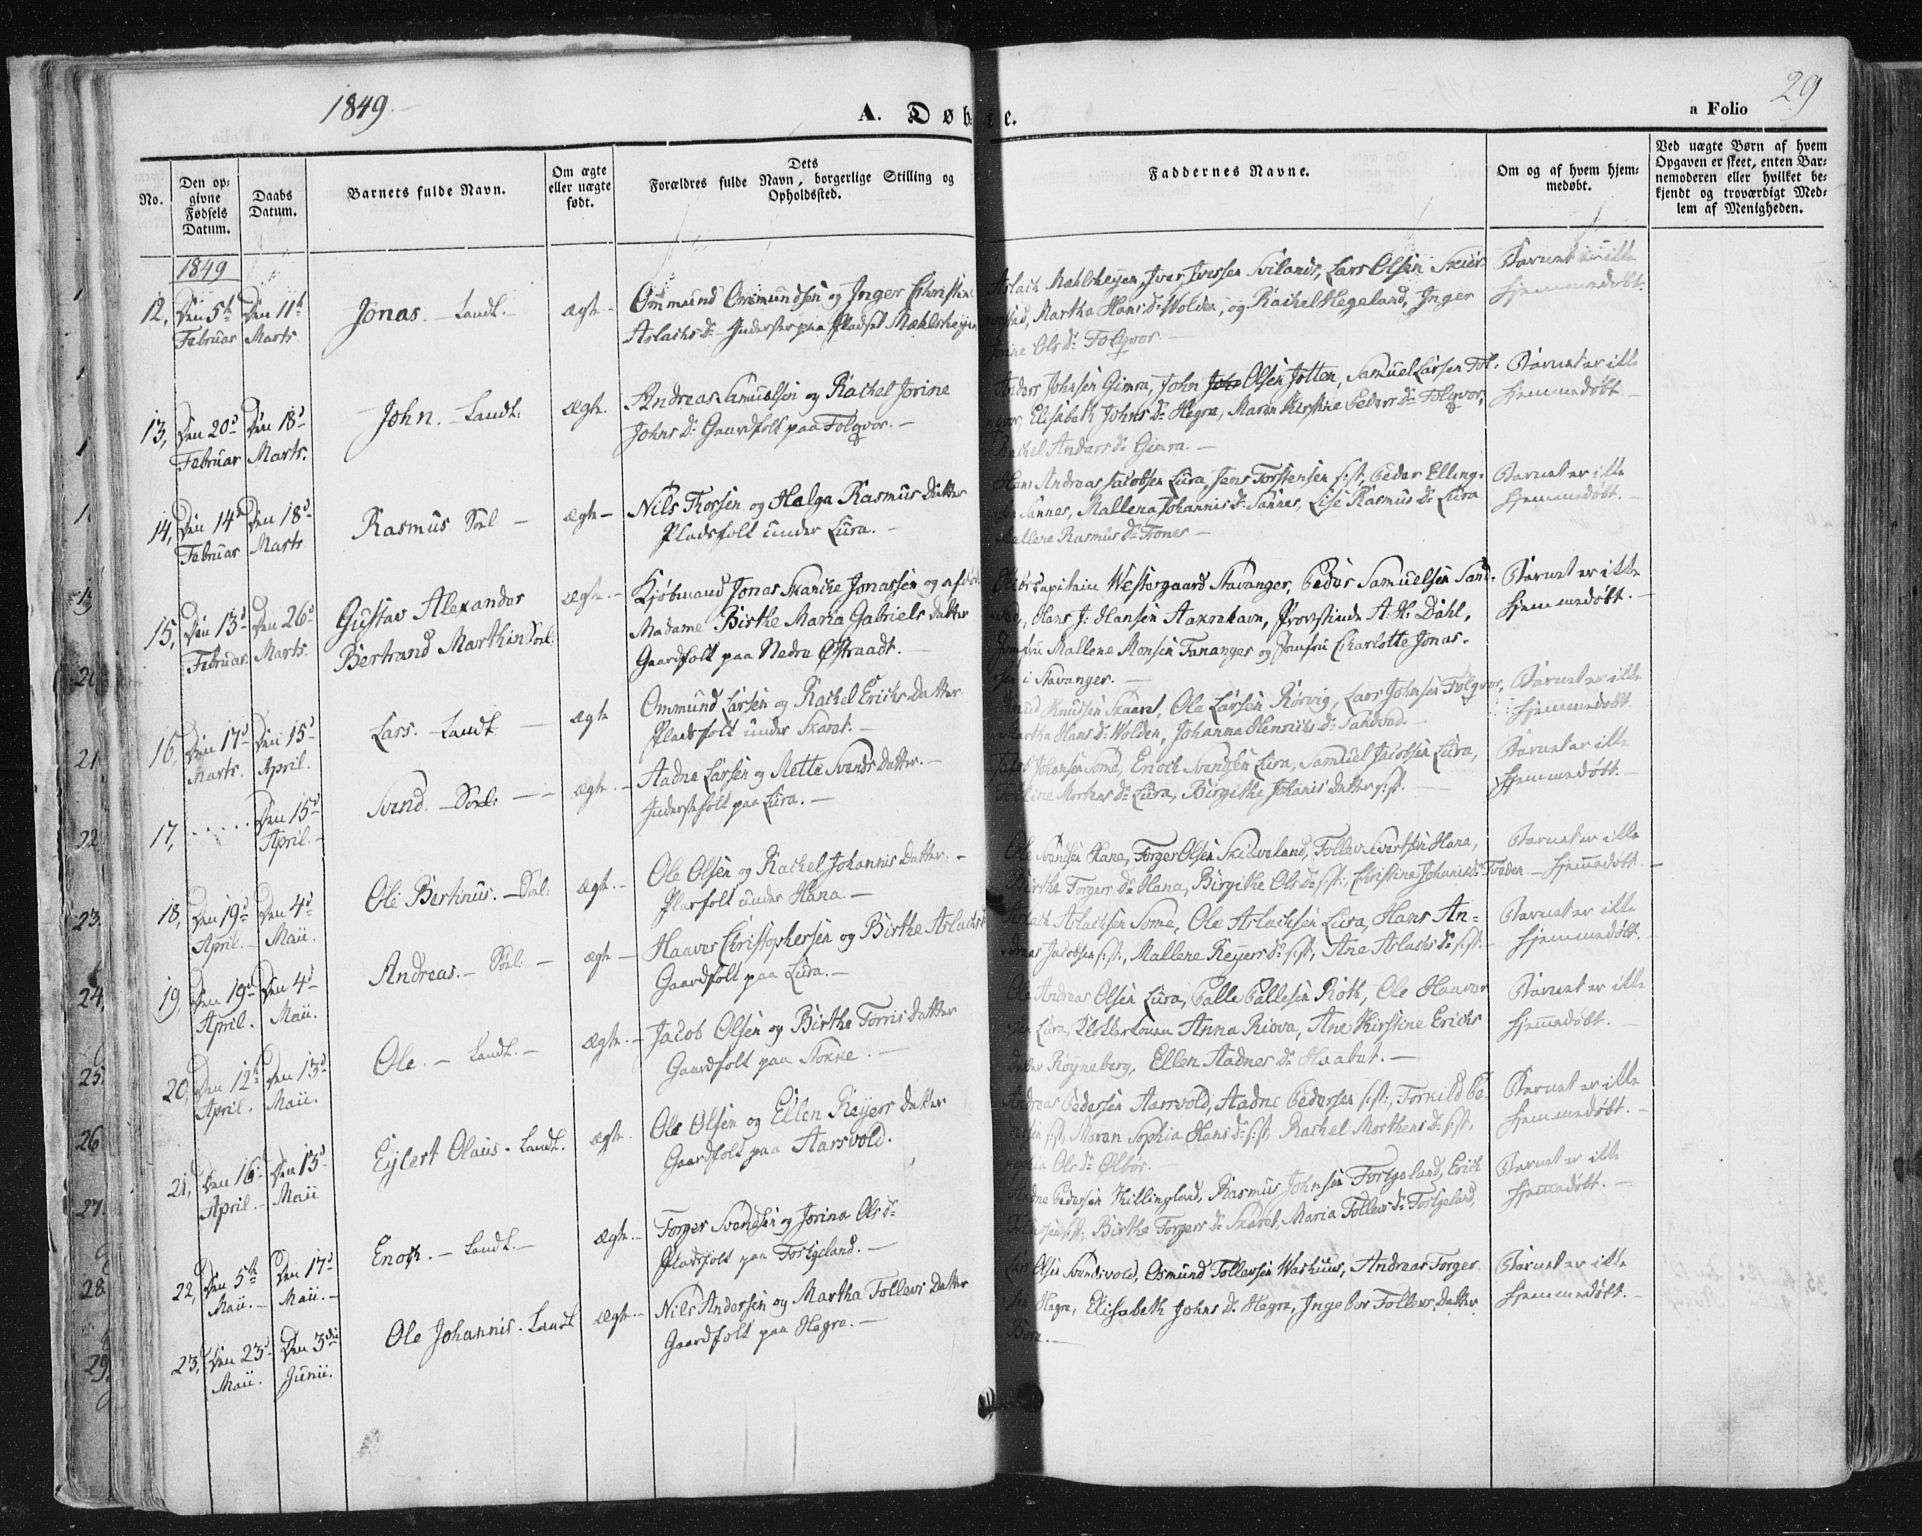 1849.
A. Døbte.
a Folio
29
No.
Den op-
givne
Fødsels
Datum.
Daabs
Datum.
Barnets fulde Navn.
Om ægte
eller uægte
født.
Dets
Forældres fulde Navn, borgerlige Stilling og
Opholdssted.
Faddernes Navne.
Om og af hvem hjem-
medøbt.
Ved uægte Børn af hvem
Opgaven er skeet, enten Bar-
nemoderen eller hvilket be-
kjendt og troværdigt Med-
lem af Menigheden.
1849
12, Den 5te Februar
Den 11te Marts
Jonas. – Landt. –
ægte –
Ommund Ommundsen og Inger Christine
Aslachs Dr. Inderster paa Pladset Mæhlsheyen
Aslach Mæhlsheyen, Iver Iversen Sviland, Lars Olsen
Martha Hans Dr. Wolden, og Rachel Hegeland, Inger
Jorine Ols Dr. Folqvor –
Barnet er ikke
hjemmedøbt.
13, Den 20d Februar
Den 18d Marts.
John. – Landt.
ægte.
Andreas Samuelsen og Rachel Jorine
Johns Dr. Gaardfolk paa Folqvor. –
Anders Johnsen Gimra, John Olsen Jotten, Samuel Larsen Fol-
qvor, Elisabeth Johns Dr. Hegre, Maren Kirstine Peders Dr. Folqvor,
Rachel Anders Dr. Gimra. –
Barnet er ikke
hjemmedøbt. –
14, Den 14d Februar
Den 18d Marts
Rasmus Søel –
ægte –
Nils Thorsen og Helga Rasmus Datter
Pladsfolk under Lura. –
Hans Andreas Jacobsen Lura, Jens Torstensen s:st, Peder Elling-
sen Sannes, Mallena Johannis Dr. Sannes, Lise Rasmus Dr. Lura
Mallene Rasmus Dr. Trones –
Barnet er ikke
hjemmedøbt. –
15, Den 13d Februar
Den 26d Marts.
Gustav Alexander
Bertrand Marthin Søel.
ægte. –
Kjøbmand Jonas Skancke Jonassen og afdøde
Madame Birthe Maria Gabriels Datter
Gaardfolk paa Nedre Østraadt. –
Westergaard Stavanger, Peder Samuelsen Sand-
ved, Hans J. Hansen Haxrahavn, Provstinde A. H. Dahl,
Jomfru Mallene Monsen Tananger og Jomfru Charlotte Jonas-
sen i Stavanger. –
Barnet er ikke
hjemmedøbt. –
16, Den 17d Marts.
Den 15d April.
Lars. – Landt –
ægte
Ommund Larsen og Rachel Erichs Datter
Pladsfolk under Skaret. –
Knud Knudsen Skaaret, Ole Larsen Rørvig, Lars Johnsen Folqvor,
Martha Hans Dr. Wolden, Johanna Henrichs Dr. Sandved. –
Barnet er ikke
hjemmedøbt.
17,
Den 15d April. –
Svend. – Søel: –
ægte. –
Aadne Larsen og Mette Svends Datter. –
Inderstefolk paa Lura. –
Jacob Johansen Somé, Enoch Svendsen Lura, Samuel Jacobsen Lura,
Mortens Dr. Lura, Birgithe Johanis Datter s:st. –
Barnet er ikke
hjemmedøbt. –
18, Den 19d April. –
Den 4d Maii.
Ole Bertinus. – Søel:
ægte. –
Ole Olsen og Rachel Johannis Datter. –
Pladsfolk under Hana. –
Ole Svendsen Hana, Torger Olsen Skilveland, Tollev Svertsen Hana,
Birthe Torgers Dr. Hana, Birgithe Ols Dr. s:st. Christine Johanis Dr. –
Barnet er ikke
hjemmedøbt. –
19, Den 19d April.
Den 4d Maii.
Andreas. – Søel. –
ægte –
Haaver Christophersen og Birthe Aslachs Dr.
Gaardfolk paa Lura. –
Aslach Aslachsen Some, Ole Aslachsen Lura, Hans An-
dreas Jacobsen s:st., Mallene Reyers Dr. s:st, Ane Aslachs Dr. s:st. –
Barnet er ikke
hjemmedøbt. –
20, Den 12te April.
Den 13d Maii.
Ole. – Landt. –
ægte. –
Jacob Olsen og Birthe Torris Datter
Gaardfolk paa Stokke. –
Ole Andreas Olsen Lura, Palle Pallesen Roth, Ole Haaver
sen Lura, Anna Riova, Ane Kirstine Erichs
Datter Røyneberg, Ellen Aadnes Dr. Haabet. –
Barnet er ikke
hjemmedøbt. –
21, Den 16d April. –
Den 13d Maii
Eylert Olaus. Landt.
ægte.
Ole Olsen og Ellen Reyers Datter
Gaardfolk paa Aarsvold.
Andreas Pedersen Aarsvold, Aadne Pedersen s:st:, Tornild Pe-
dersen s:st, Maren Sophia Hans Dr. s:st, Rachel Morthens Dr. s:st,
Sophia Ols Dr. Ølbør. –
Barnet er ikke
hjemmedøbt. –
22, Den 5te Maii. –
Den 17d Maii. –
Enoch. – Landt. –
ægte. –
Torger Svendsen og Jorina Ols Dr.
Pladsfolk paa Fostgeland. –
Aadne Pedersen Killingland, Rasmus Johnsen Fostgeland, Erich
s:st: Birthe Torgers Dr. Skaret, Maria Tollevs Dr. Fostgeland,
Barnet er ikke
hjemmedøbt. –
23, Den 23d Maii.
Den 3die Junii.
Ole Johannis. Landt
ægte. –
Nils Andersen og Martha Tollevs Datter
Gaardfolk paa Hegre. –
Lars Olsen Svendsvold, Osmund Tollevsen Washuus, Andreas Torger-
sen Hegre, Elisabeth Johns Dr. Hegre, Ingebor Tollevs Datter
Barnet er ikke
hjemmedøbt. –
21.
22
23.
24,
25.
26
27.
28.
29.